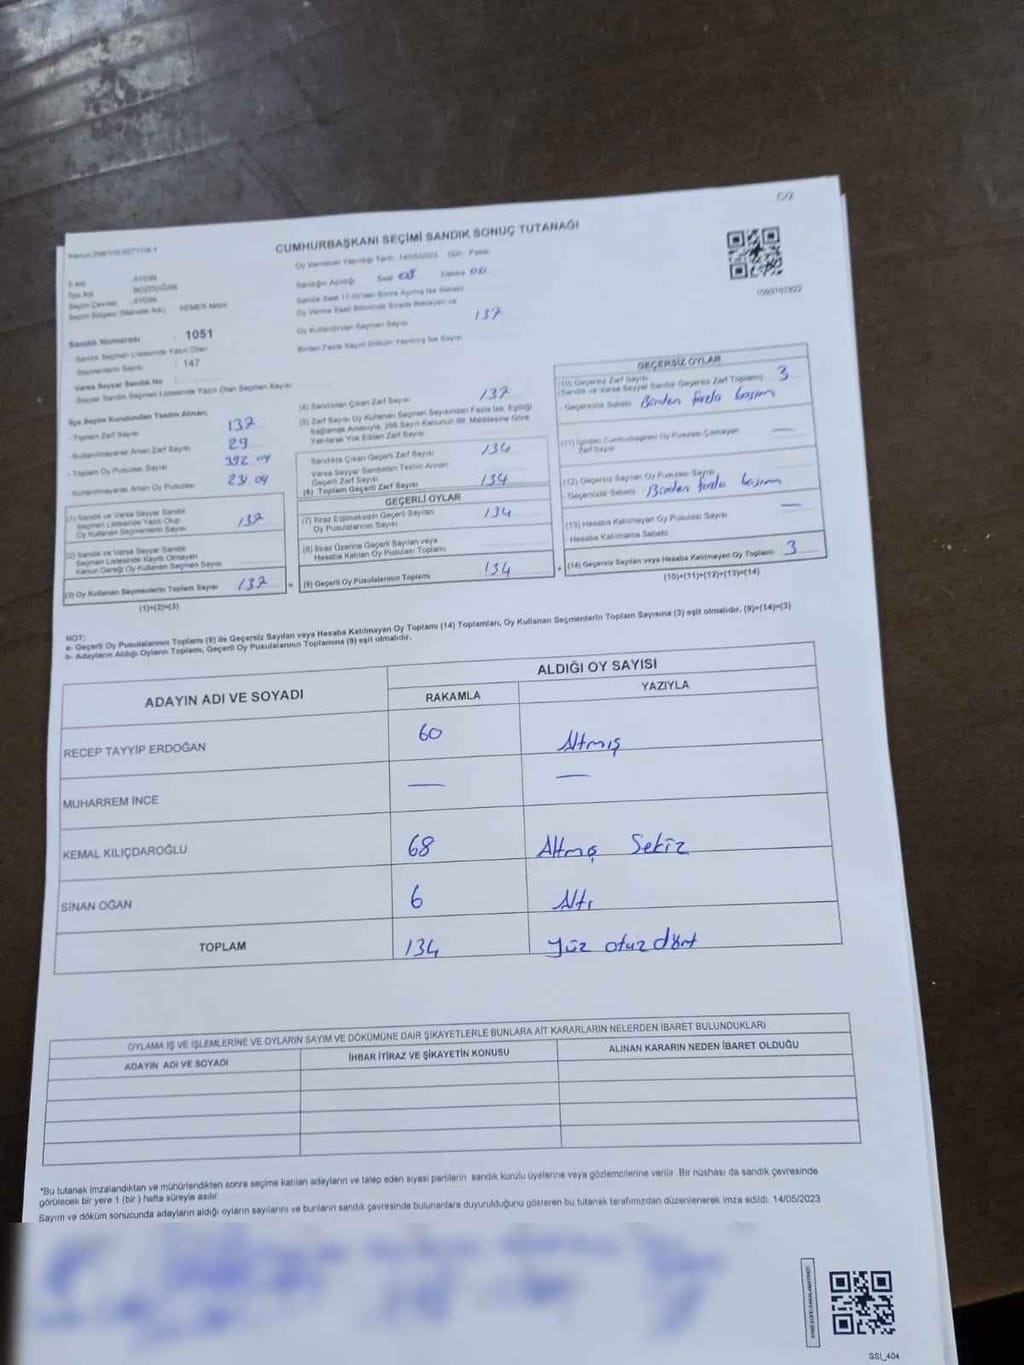 C/2
CUMHURBAŞKANI SEÇİMİ SANDIK SONUÇ TUTANAĞI
Oy Vermenin Yapıldığı Tarih: 14/05/2023 Gün: Pazar
İl Adı : AYDIN
İlçe Adı : BOZDOĞAN
Seçim Çevresi : AYDIN
Seçim Bölgesi (Mahalle Adı) : KEMER MAH
Sandığın Açıldığı Saat 08 Dakika 00
Oy Kullandırılan Seçmen Sayısı 137
Birden Fazla Sayım Döküm Yapılmış İse Sayısı
Sandık Numarası : 1051
Sandık Seçmen Listesinde Yazılı Olan
Seçmenlerin Sayısı : 147
Varsa Seyyar Sandık No :
Seyyar Sandık Seçmen Listesinde Yazılı Olan Seçmen Sayısı:
İlçe Seçim Kurulundan Teslim Alınan;
- Toplam Zarf Sayısı 137
- Kullanılmayarak Artan Zarf Sayısı 29
- Toplam Oy Pusulası Sayısı 392
- Kullanılmayarak Artan Oy Pusulası
(1) Sandık ve Varsa Seyyar Sandık
Seçmen Listesinde Yazılı Olup
Oy Kullanan Seçmenlerin Sayısı 137
(2) Sandık ve Varsa Seyyar Sandık
Seçmen Listesinde Kayıtlı Olmayan
Kanun Gereği Oy Kullanan Seçmen Sayısı
(3) Oy Kullanan Seçmenlerin Toplam Sayısı 137
(1)+(2)=(3)
(4) Sandıktan Çıkan Zarf Sayısı 137
(5) Zarf Sayısı Oy Kullanan Seçmen Sayısından Fazla İse, Eşitliği
Sağlamak Amacıyla, 298 Sayılı Kanunun 98. Maddesine Göre
Yakılarak Yok Edilen Zarf Sayısı
Sandıkta Çıkan Geçerli Zarf Sayısı 134
Varsa Seyyar Sandıktan Teslim Alınan
Geçerli Zarf Sayısı
(6) Toplam Geçerli Zarf Sayısı 134
GEÇERLİ OYLAR
(7) İtiraz Edilmeksizin Geçerli Sayılan
Oy Pusulalarının Sayısı 134
(8) İtiraz Üzerine Geçerli Sayılan veya
Hesaba Katılan Oy Pusulası Toplamı
= (9) Geçerli Oy Pusulalarının Toplamı 134
GEÇERSİZ OYLAR
(10) Geçersiz Zarf Sayısı
(Sandık ve Varsa Seyyar Sandık Geçersiz Zarf Toplamı) 3
- Geçersizlik Sebebi Birden fazla basım
(11) İçinden Cumhurbaşkanı Oy Pusulası Çıkmayan
Zarf Sayısı —
(12) Geçersiz Sayılan Oy Pusulası Sayısı
- Geçersizlik Sebebi Birden fazla basım
(13) Hesaba Katılmayan Oy Pusulası Sayısı —
- Hesaba Katılmama Sebebi
+ (14) Geçersiz Sayılan veya Hesaba Katılmayan Oy Toplamı 3
(10)+(11)+(12)+(13)=(14)
NOT:
a- Geçerli Oy Pusulalarının Toplamı (9) ile Geçersiz Sayılan veya Hesaba Katılmayan Oy Toplamı (14) Toplamları, Oy Kullanan Seçmenlerin Toplam Sayısına (3) eşit olmalıdır. (9)+(14)=(3)
b- Adayların Aldığı Oyların Toplamı, Geçerli Oy Pusulalarının Toplamına (9) eşit olmalıdır.
ADAYIN ADI VE SOYADI
ALDIĞI OY SAYISI
RAKAMLA YAZIYLA
RECEP TAYYİP ERDOĞAN 60 Altmış
MUHARREM İNCE — —
KEMAL KILIÇDAROĞLU 68 Altmış Sekiz
SİNAN OĞAN 6 Altı
TOPLAM 134 Yüz otuz dört
OYLAMA İŞ VE İŞLEMLERİNE VE OYLARIN SAYIM VE DÖKÜMÜNE DAİR ŞİKAYETLERLE BUNLARA AİT KARARLARIN NELERDEN İBARET BULUNDUKLARI
ADAYIN ADI VE SOYADI İHBAR İTİRAZ VE ŞİKAYETİN KONUSU ALINAN KARARIN NEDEN İBARET OLDUĞU
*Bu tutanak imzalandıktan ve mühürlendikten sonra seçime katılan adayların ve talep eden siyasi partilerin sandık kurulu üyelerine veya gözlemcilerine verilir. Bir nüshası da sandık çevresinde
görülecek bir yere 1 (bir) hafta süreyle asılır.
Sayım ve döküm sonucunda adayların aldığı oyların sayılarını ve bunların sandık çevresinde bulunanlara duyurulduğunu gösteren bu tutanak tarafımızdan düzenlenerek imza edildi. 14/05/2023
SSİ_404